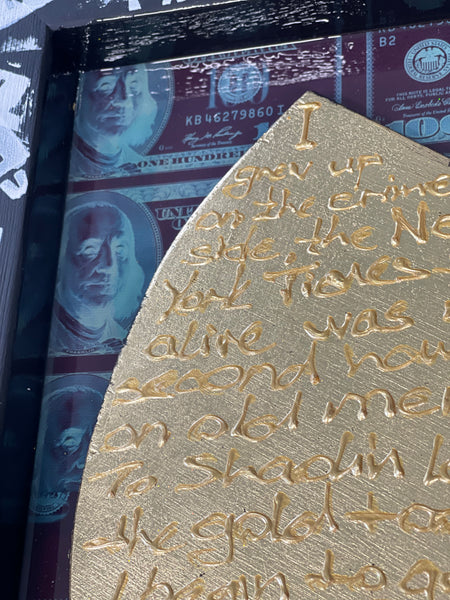 B2
100
KB46279860 I
THIS NOTE IS LEGAL TENDER
FOR ALL DEBTS, PUBLIC AND
ONE HUNDRED
100
UNITED
I
grew up
on the crime
side, the Ne
York Times
alive was
second
on old me
To Shaolin
the gold
I begin to